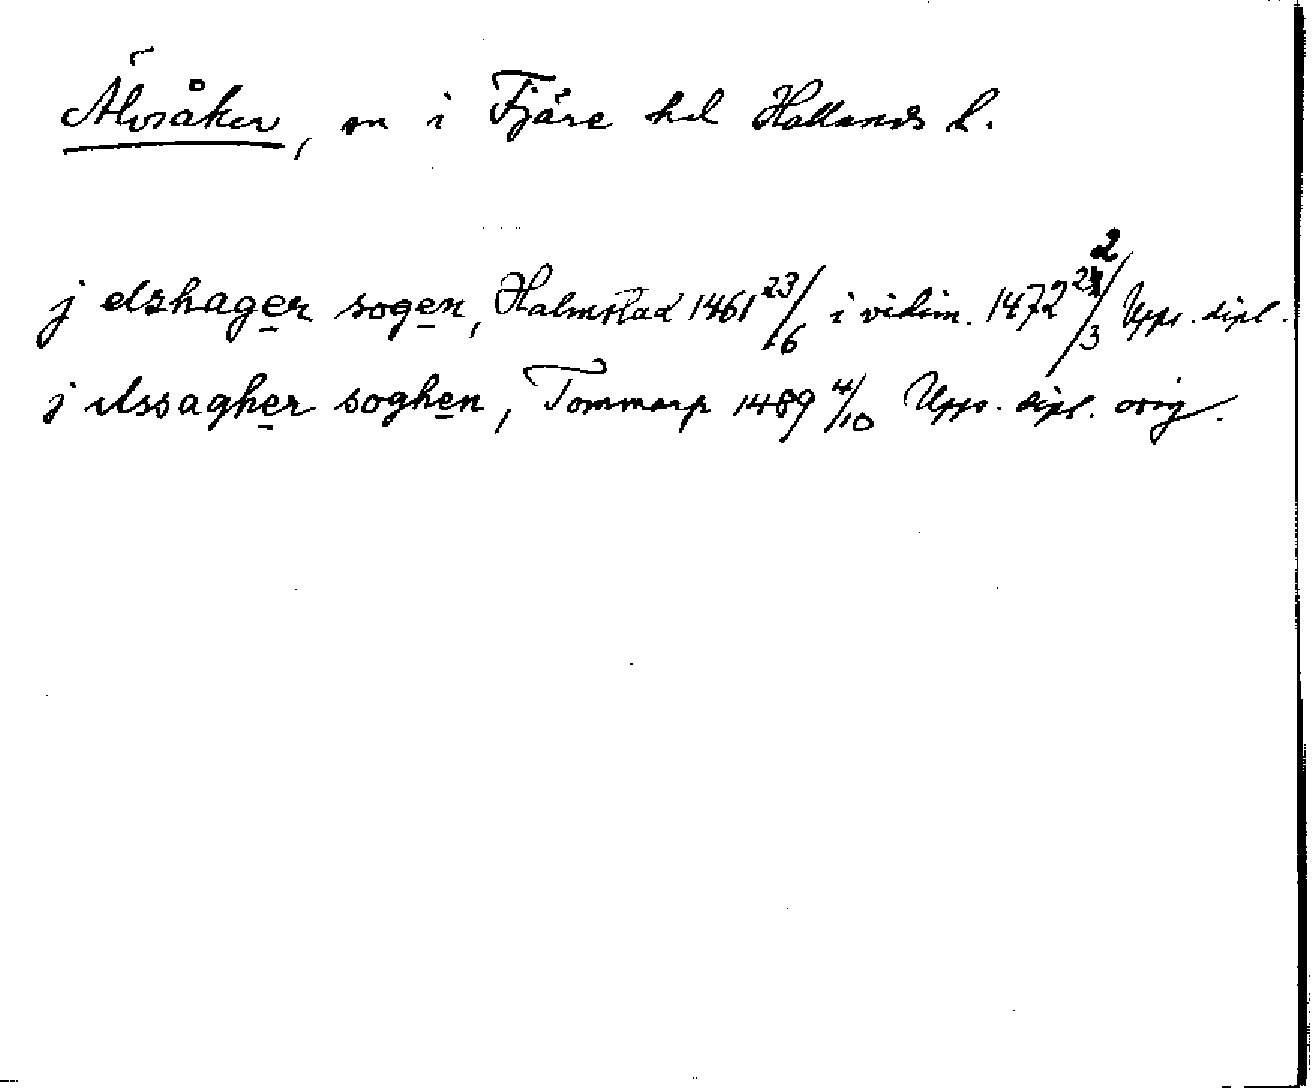 Älvsåker, sn i Fjäre hd Hallands l.
j elzhager sogen, Halmstad 1461 23/6 i vidim. 1472 22/3 Upps. dipl.
j elssagher soghen, Tommarp 1489 4/10 Upps. dipl. orig.